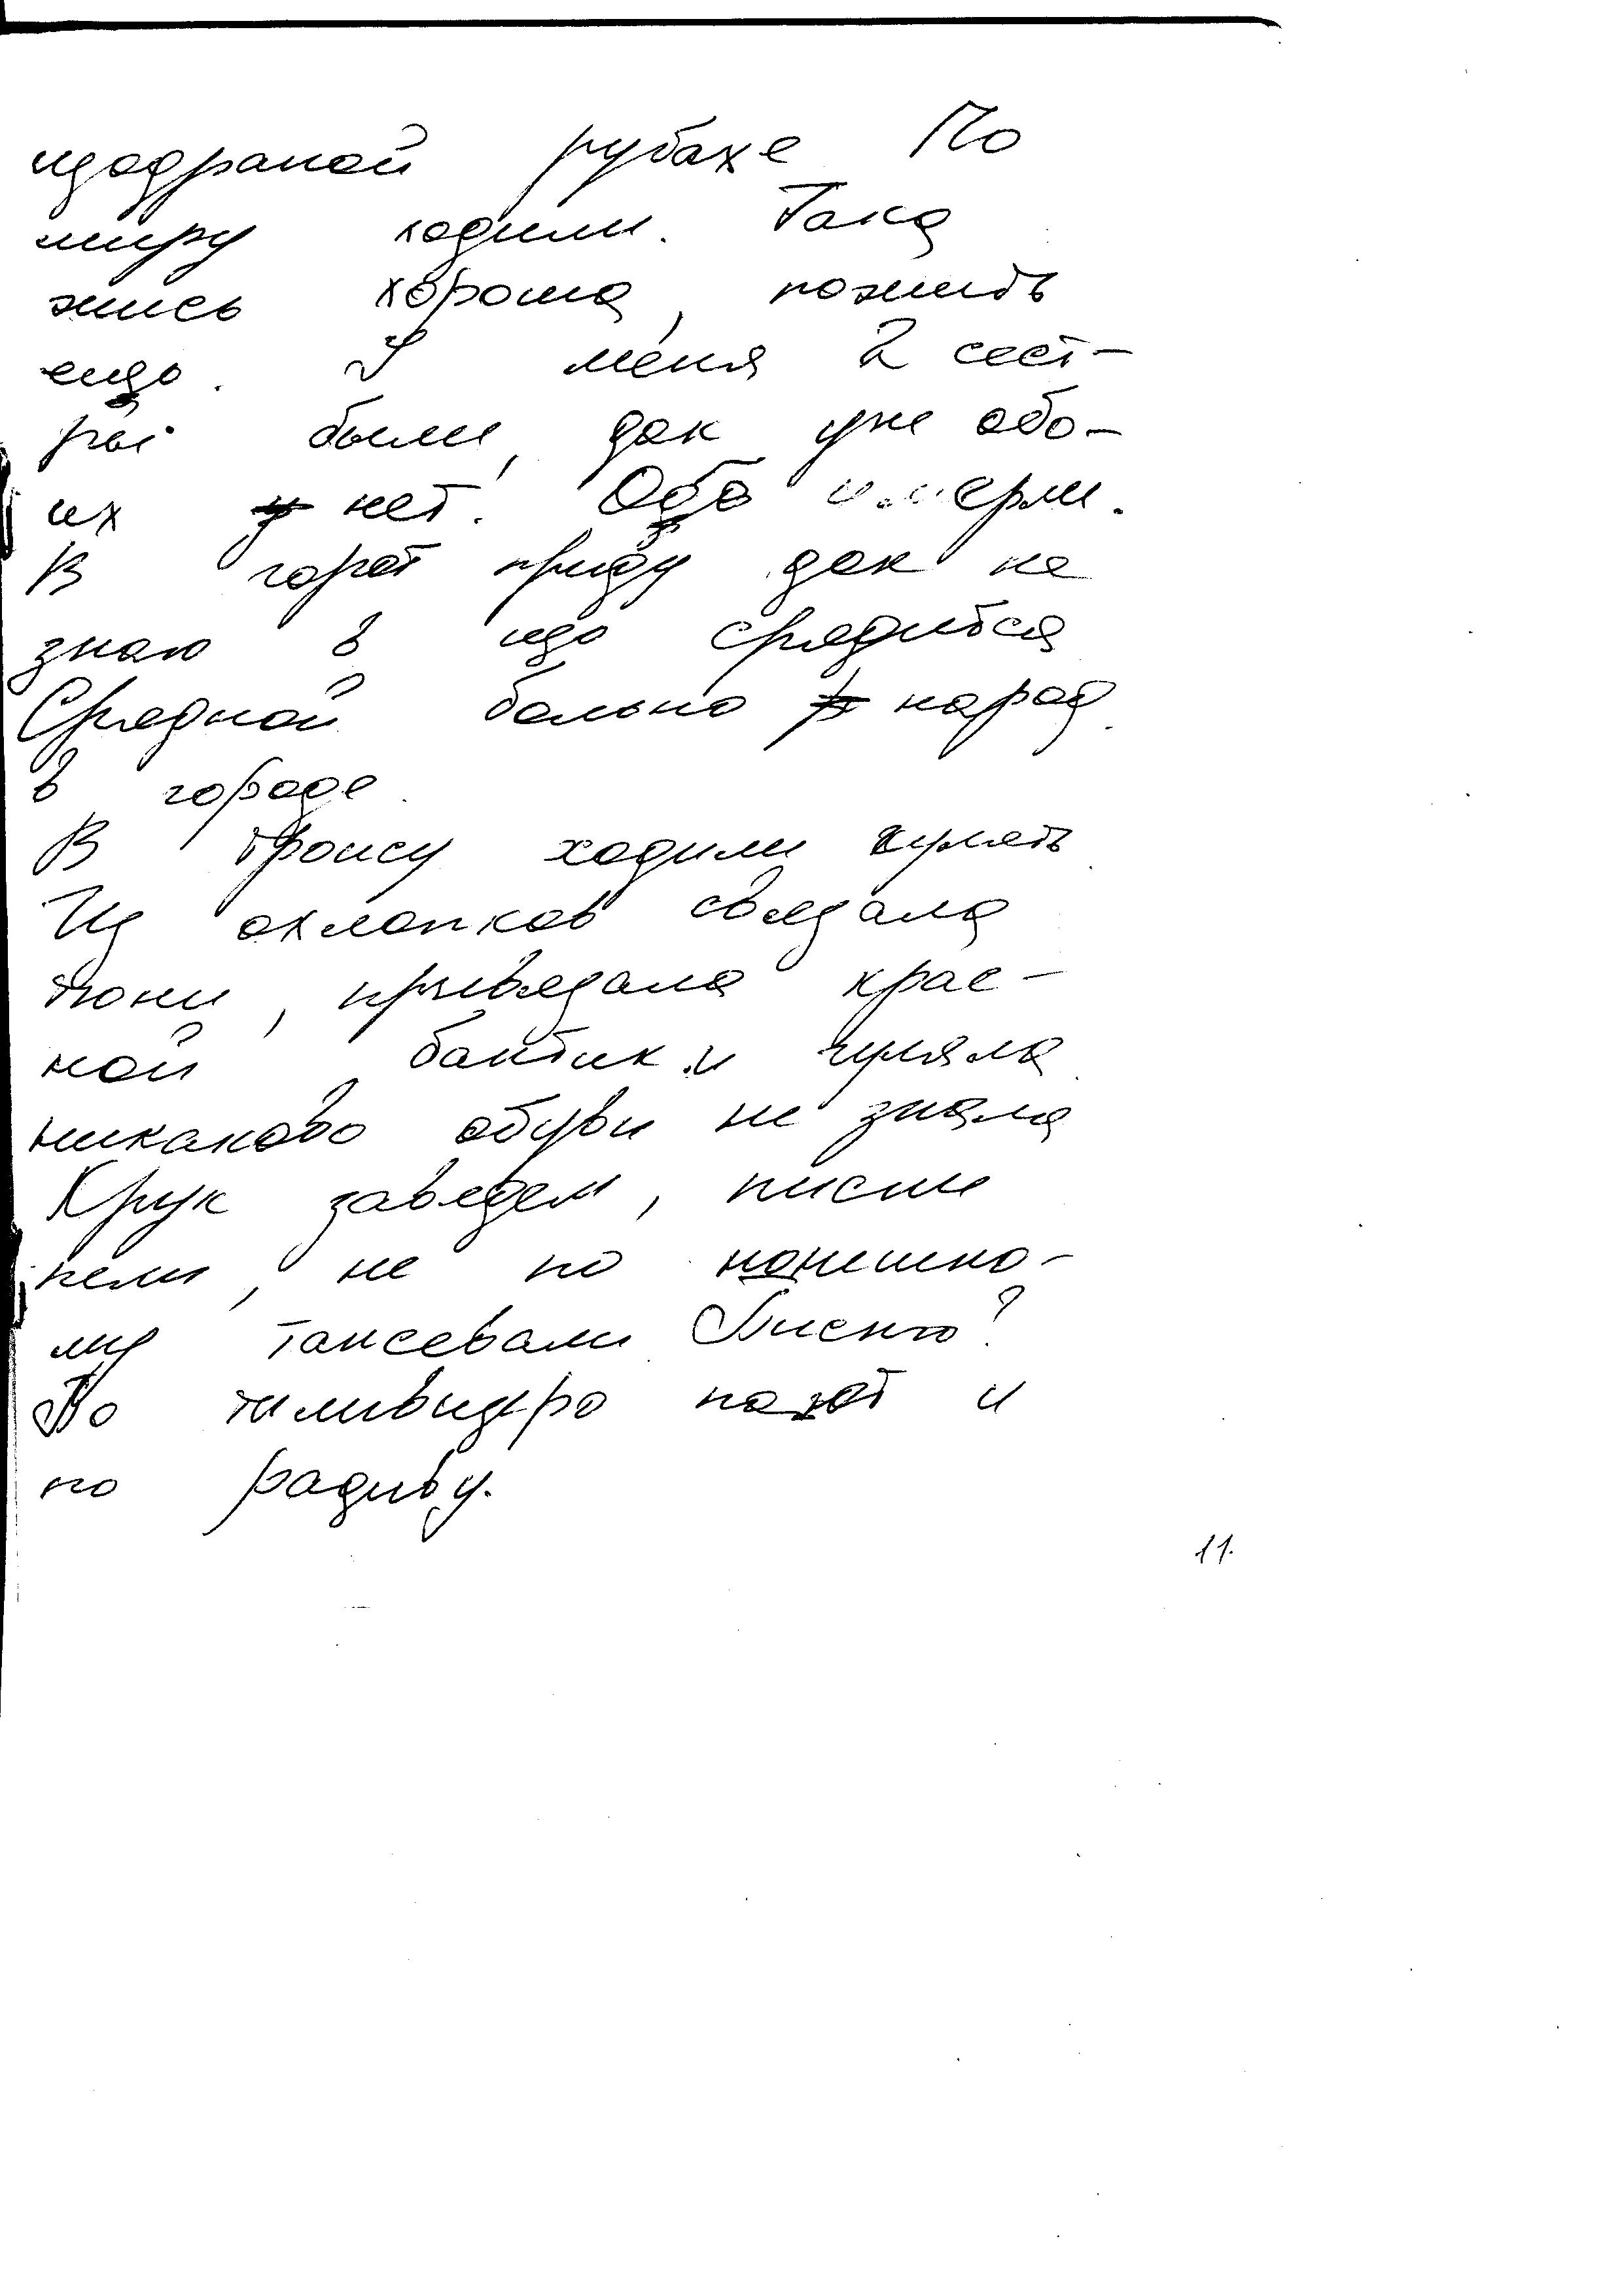 изодраной рубахе По
миру ходили. Така
жись хороша, пожить
ещо. У меня 2 сест-
ры были, дак уже обо-
их нет. Обе умерли.
В горот приду дак не
знаю в що срядится
Срядной больно народ
в городе.
В троису ходили гулять
Из охлопков свезала
тюни, привезала крас-
ной бантик и гуляла
никаково обуви не знала
Крук заведем, писни
пели, не по нонешно-
му тансевали. Писню?
По тиливизеро поют и
по радиву.
11.